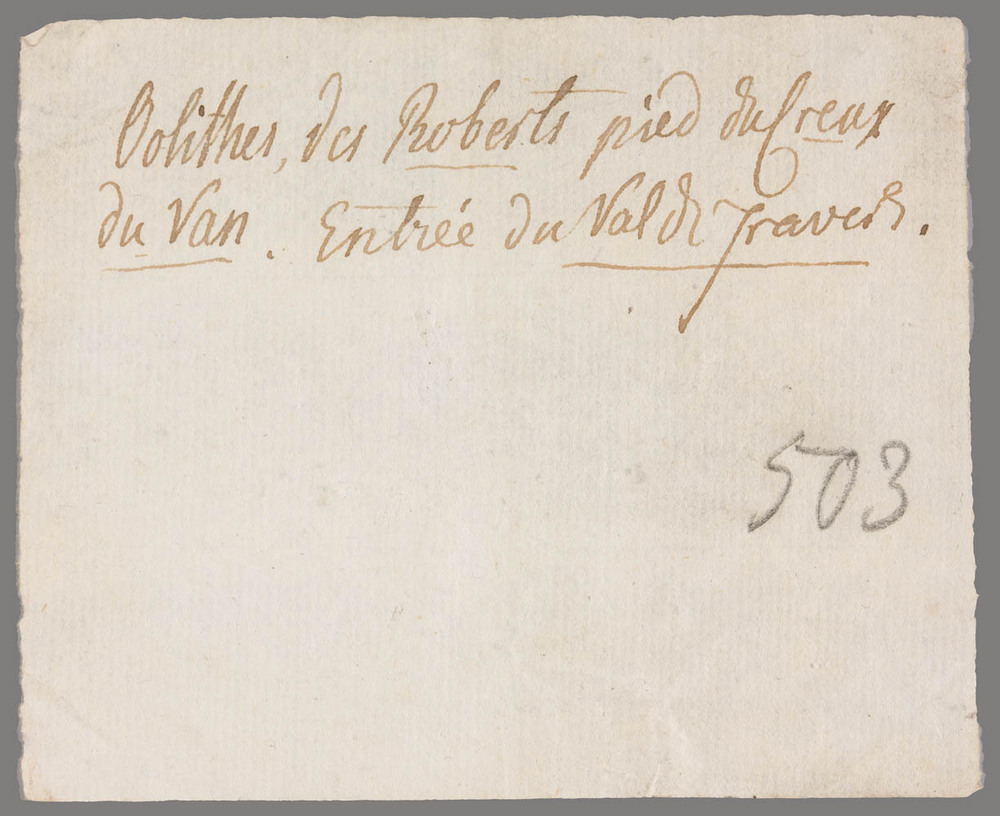 Oolithes, des Roberts pied du Creux
du Van. Entrée du Val de Travers.
503